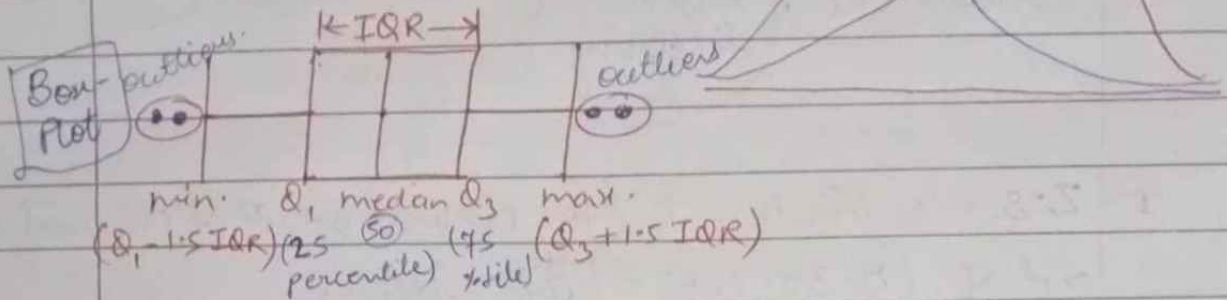 IQR
Box-
Plot
outliers.
outliers
min. Q1 median Q3 max.
(Q1 - 1.5 IQR) (25 percentile) 50 (75 %ile) (Q3 + 1.5 IQR)